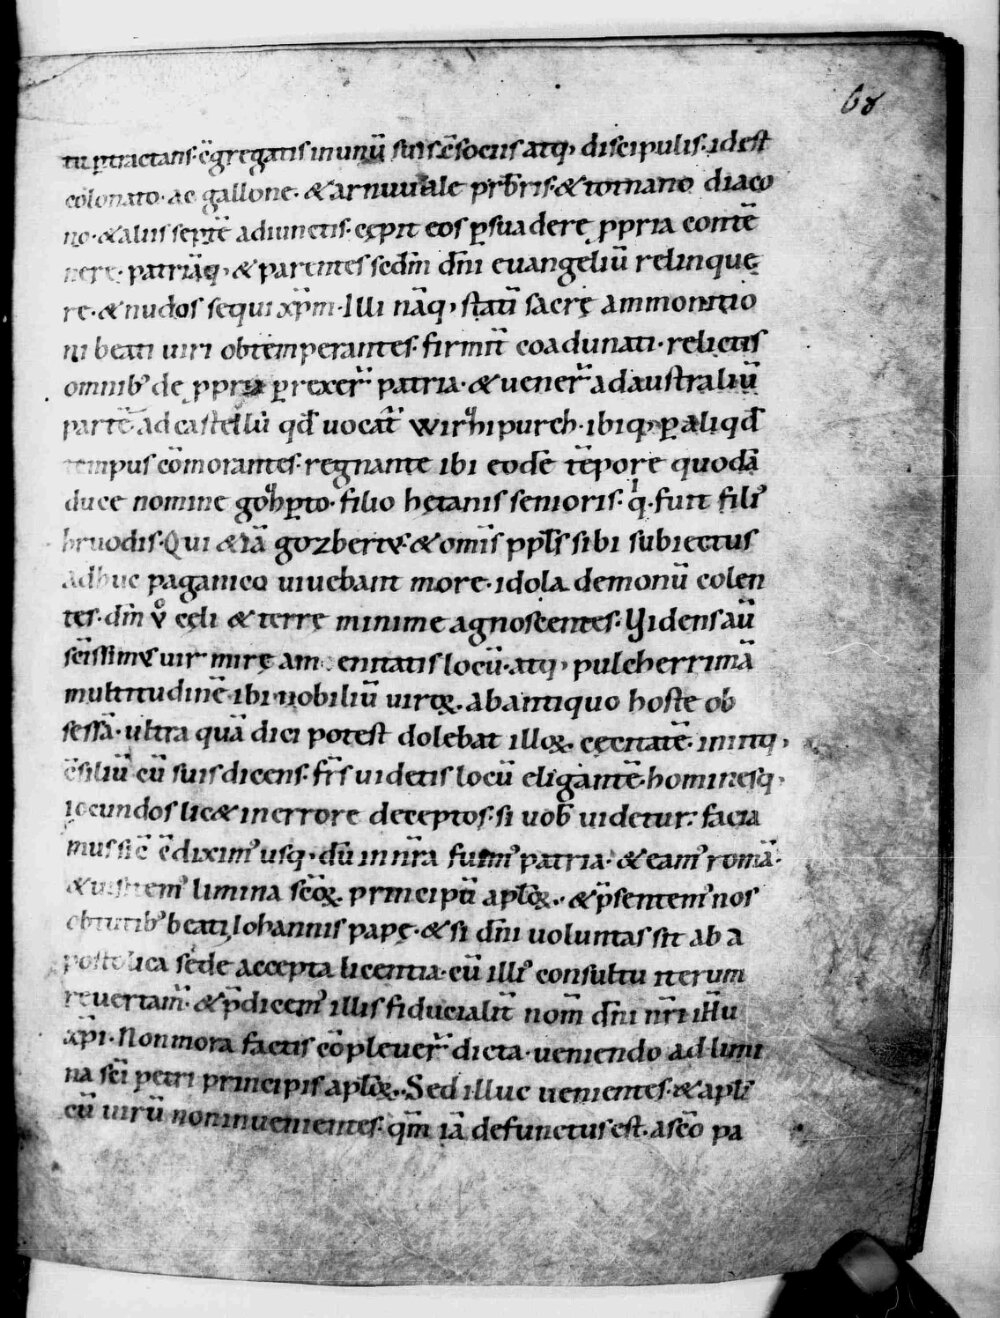 68
tu ꝑtractans· c̄gregatis in unū suis c̄sociis atq; discipulis· id est
colonato· ac gallone· & arnuuale pr̄bris· & totnano diaco
no· & aliis septē adiunctis· cępit eos ꝑsuadere ꝓpria contē
nere· patriāq; & parentes sedm̄ dn̄i euangeliū relinque
re· & nudos sequi xp̄m· Illi nāq; statī sacrę ammonitio
ni beati uiri obtemperantes· firmit̄ coadunati· relictis
omnib; de ꝓpria ꝑrexer̄ patria· & uener̄ ad australiū
partē· ad castellū qd̄ uocat̄ wirhipurch· ibiq; ꝑ aliqd̄
tempus cōmorantes· regnante ibi eodē tēpore quodā
duce nomine gozꝑto· filio hętanis senioris· q̇ fuit fili;
hruodis· Qui & iā gozbertus· & om̄is ppl̄s sibi subiectus
adhuc paganico uiuebant more· idola demonū colen
tes· dm̄ v̊ cęli & terrę minime agnoscentes· Videns aū
sc̄issim; uir mirę amęnitatis locū· atq; pulcherrimā
multitudinē ibi nobiliū uiroꝝ· ab antiquo hoste ob
sessā· ultra quā dici potest dolebat illoꝝ cęcitatē· iniitq;
c̄siliū cū suis dicens· fr̄s uidetis locū eligantē· hominesq;
iocundos lic& in errore deceptos· si uob̄ uidetur· facia
mus sic̄ c̄dixim; usq; dū in nr̄a fuim; patria· & eam; romā·
& uisitem; limina sc̄oꝝ principū apl̄oꝝ· & p̄sentem; nos
obtutib; beati Iohannis papę· & si dn̄i uoluntas sit ab a
postolica sede accepta licentia· cū illi; consultu iterum
reuertam̄· & p̄dicem; illis fiducialit̄ nom̄ dn̄i nr̄i ih̄u
xp̄i· Non mora factis cōpleuer̄ dicta· ueniendo ad limi
na sc̄i petri principis apl̄oꝝ· Sed illuc uenientes· & apl̄i
cū uirū non inuenientes· qm̄ iā defunctus est· a sc̄o pa